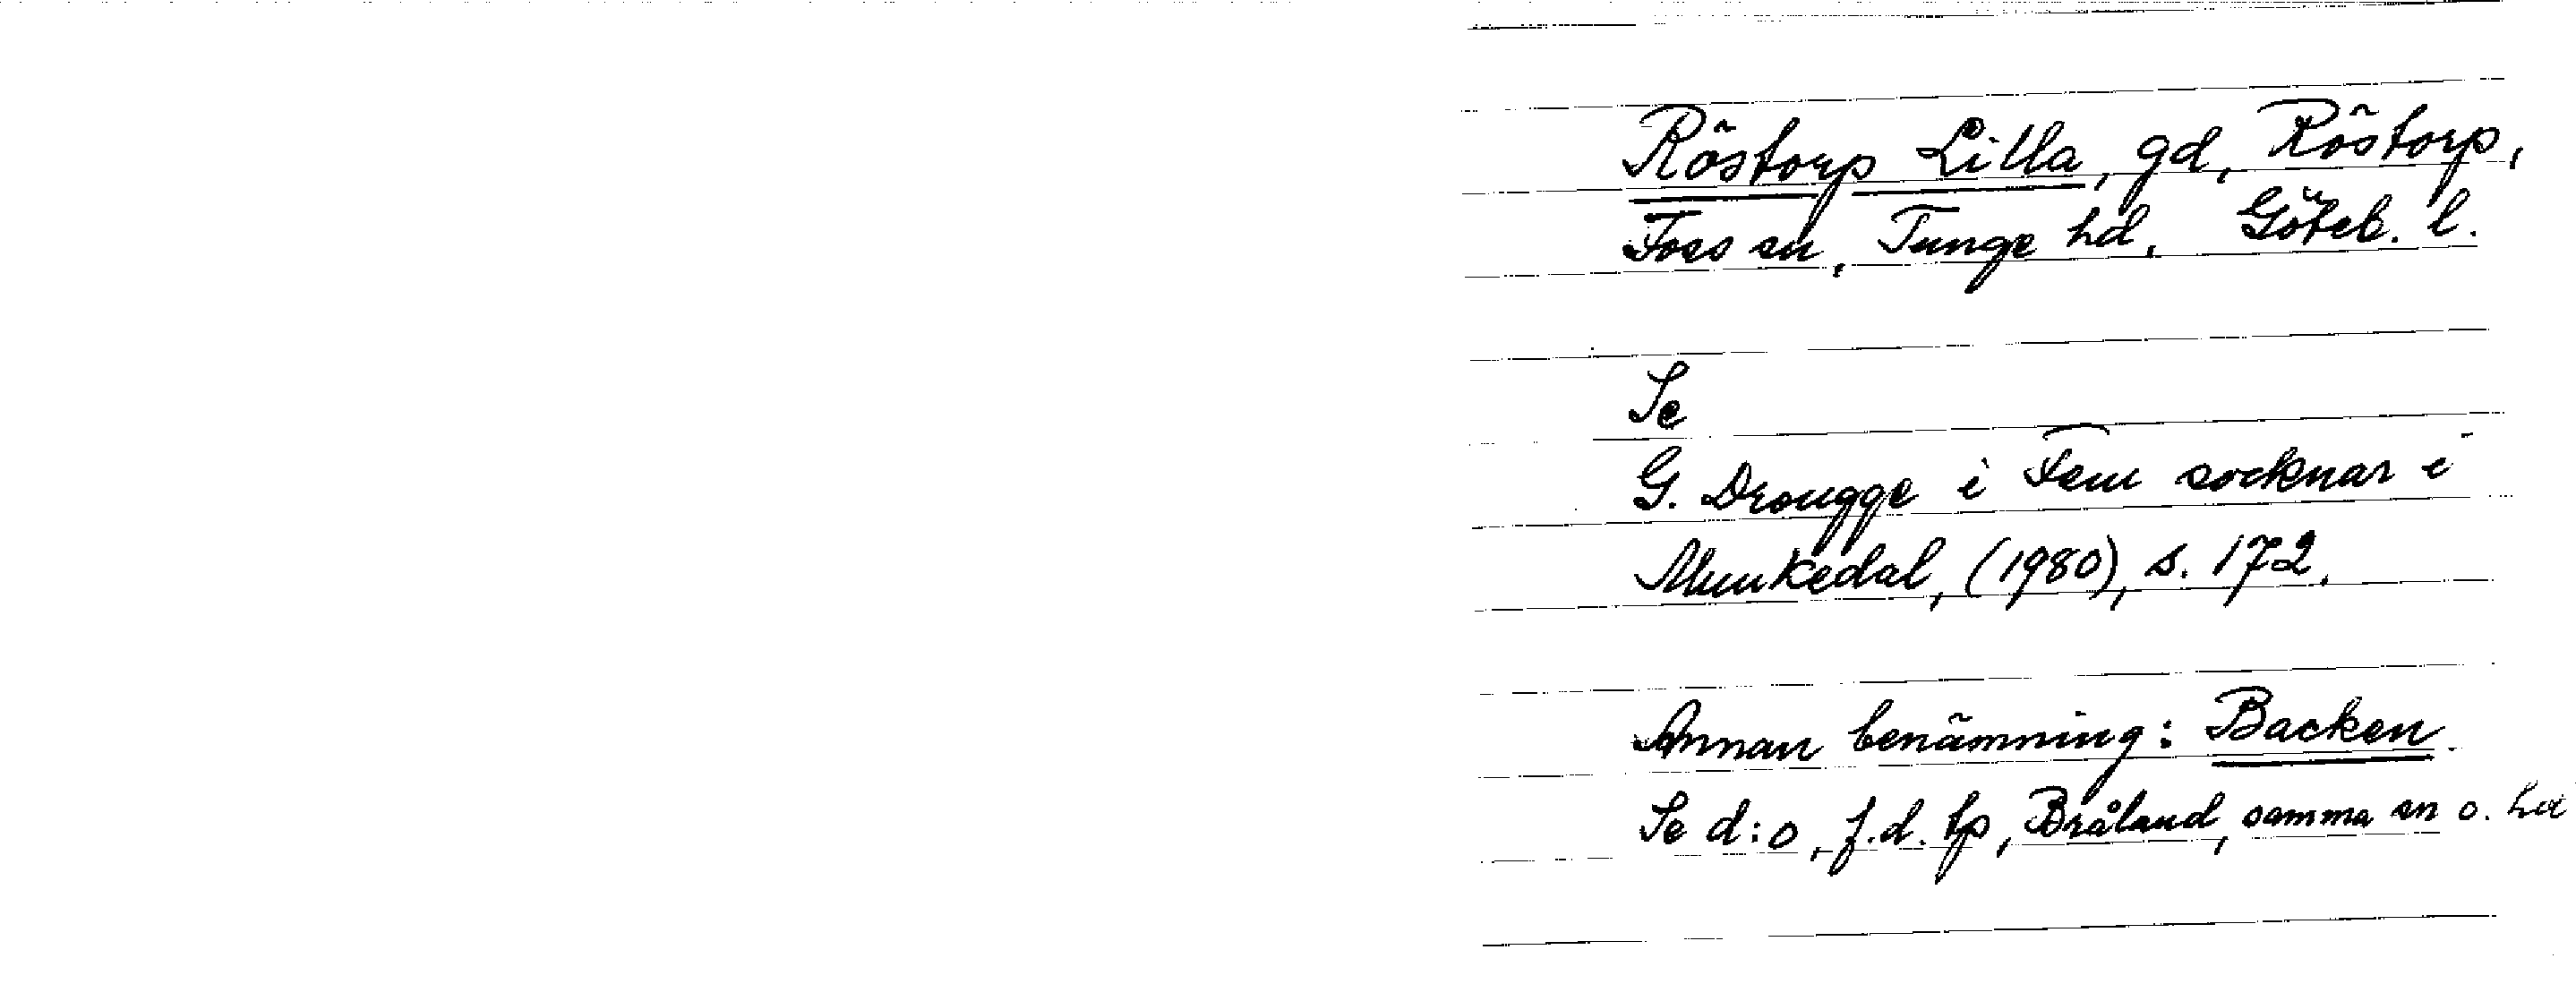 Röstorp Lilla, gd, Röstorp,
Foss sn, Tunge hd, Göteb. l.
Se
G. Drougge i Fem socknar i
Munkedal, (1980), s. 172.
Annan benämning: Backen.
Se d:o, f.d. tp, Bråland, samma sn o. hd